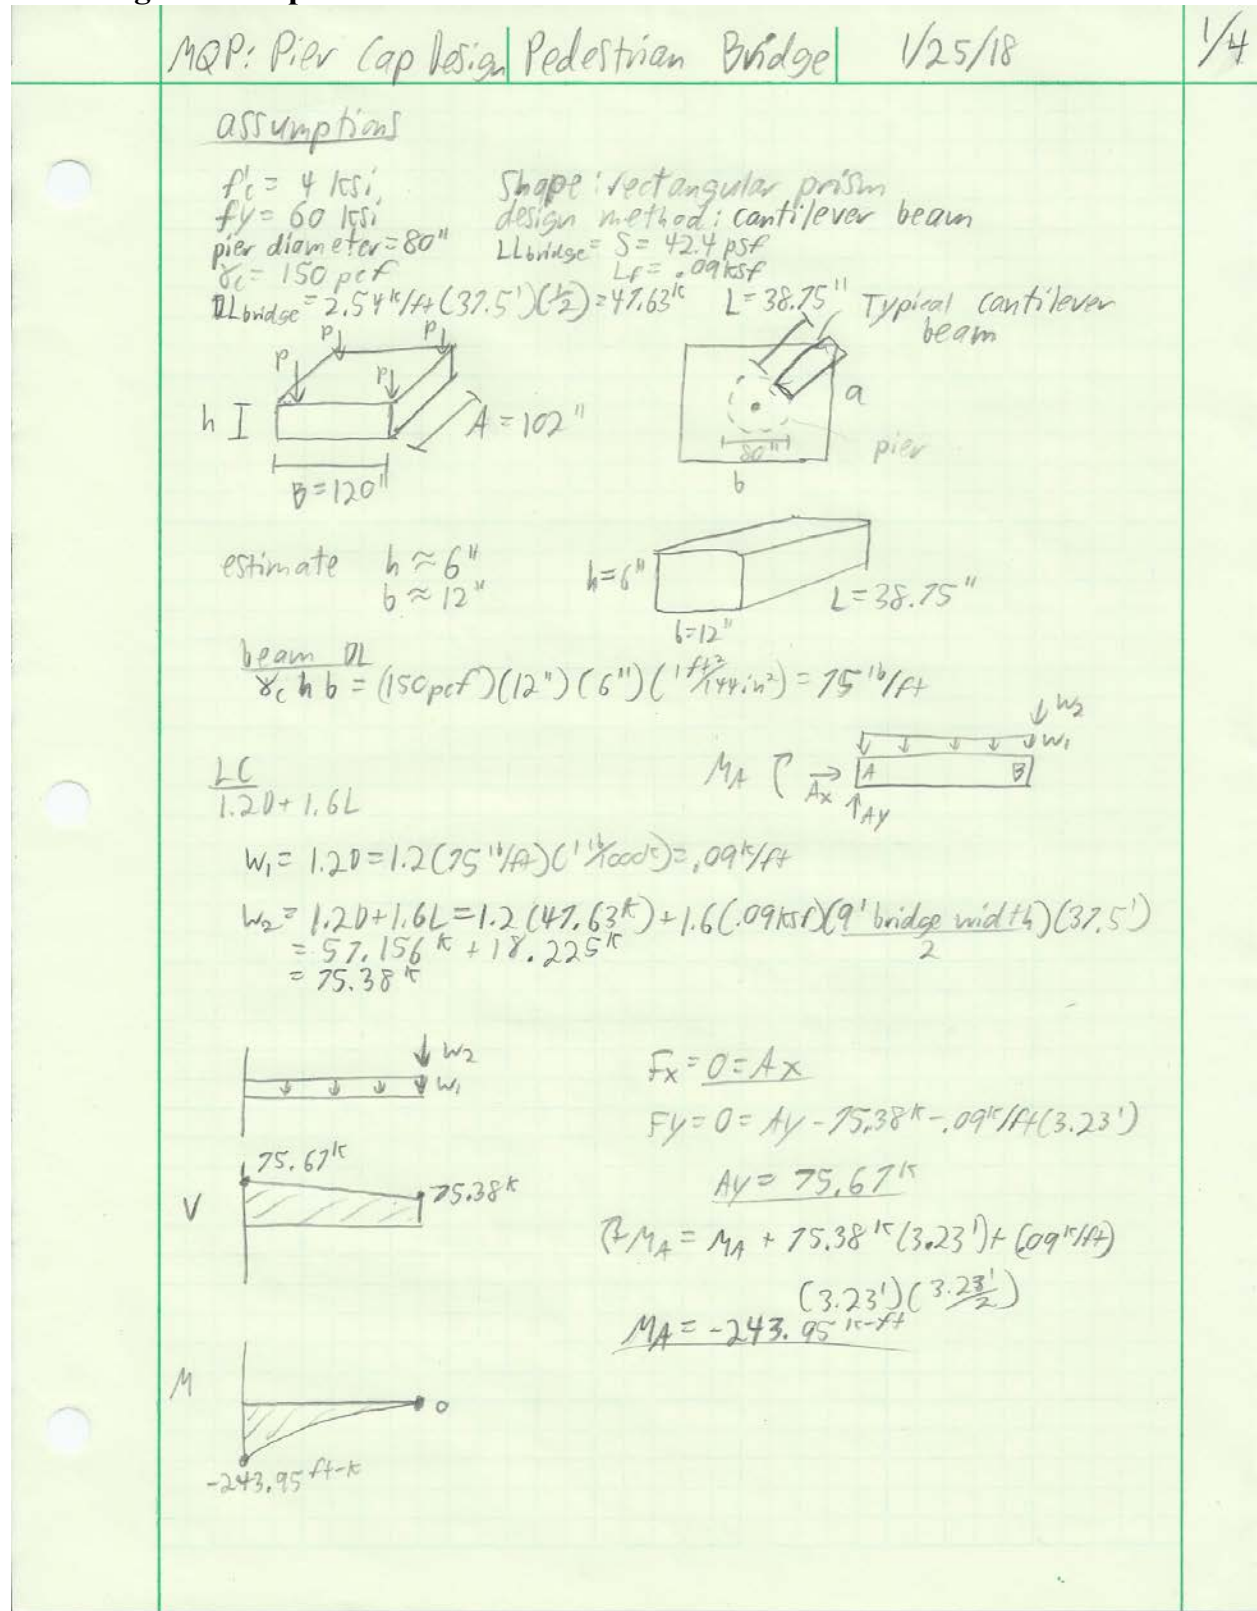 MQP: Pier Cap Design Pedestrian Bridge 1/25/18 1/4
assumptions
f'c = 4 ksi
fy = 60 ksi
pier diameter = 80"
γc = 150 pcf
DLbridge = 2.54 k/ft (37.5')(1/2) = 47.63k
Shape: rectangular prism
design method: cantilever beam
LLbridge = S = 42.4 psf
Lf = .09 ksf
L = 38.75" Typical cantilever
beam
P P
P P
h A = 102"
B = 120"
a
80" pier
b
estimate h ≈ 6"
b ≈ 12"
h=6"
L = 38.75"
b=12"
beam DL
γc h b = (150 pcf)(12")(6")(1 ft²/144 in²) = 75 lb/ft
LC
1.2D + 1.6L
W2
W1
MA Ax A B
Ay
W1 = 1.2D = 1.2(75 lb/ft)(1 lb/1000k) = .09 k/ft
W2 = 1.2D + 1.6L = 1.2(47.63k) + 1.6(.09ksf)(9' bridge width)(37.5')
2
= 57.156k + 18.225k
= 75.38k
W2
W1
Fx = 0 = Ax
Fy = 0 = Ay - 75.38k - .09k/ft(3.23')
Ay = 75.67k
75.67k
V 75.38k
+MA = MA + 75.38k(3.23') + (.09k/ft)
(3.23')(3.23'/2)
MA = -243.95 k-ft
M
0
-243.95 ft-k